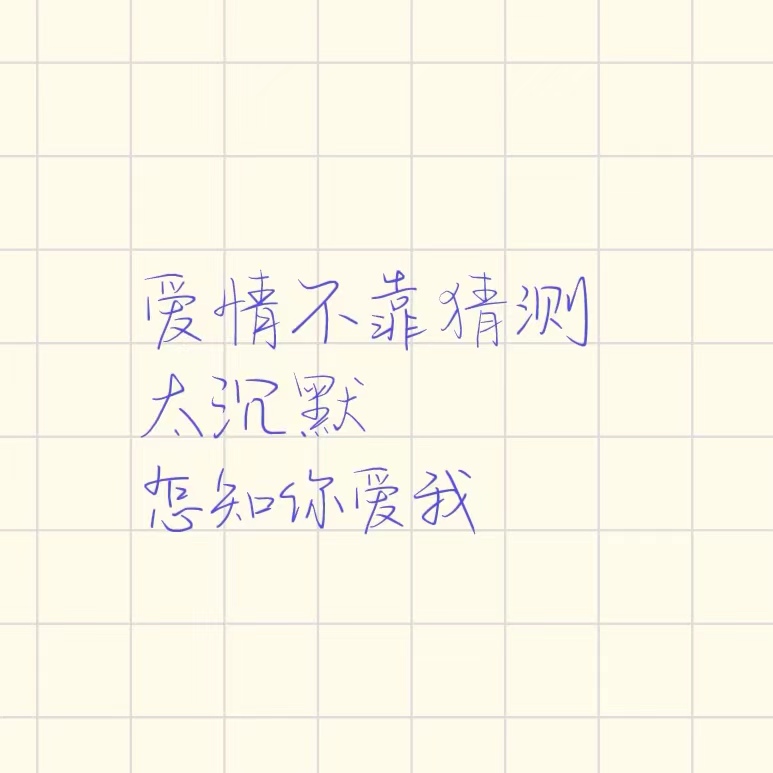 爱情不靠猜测
太沉默
怎知你爱我